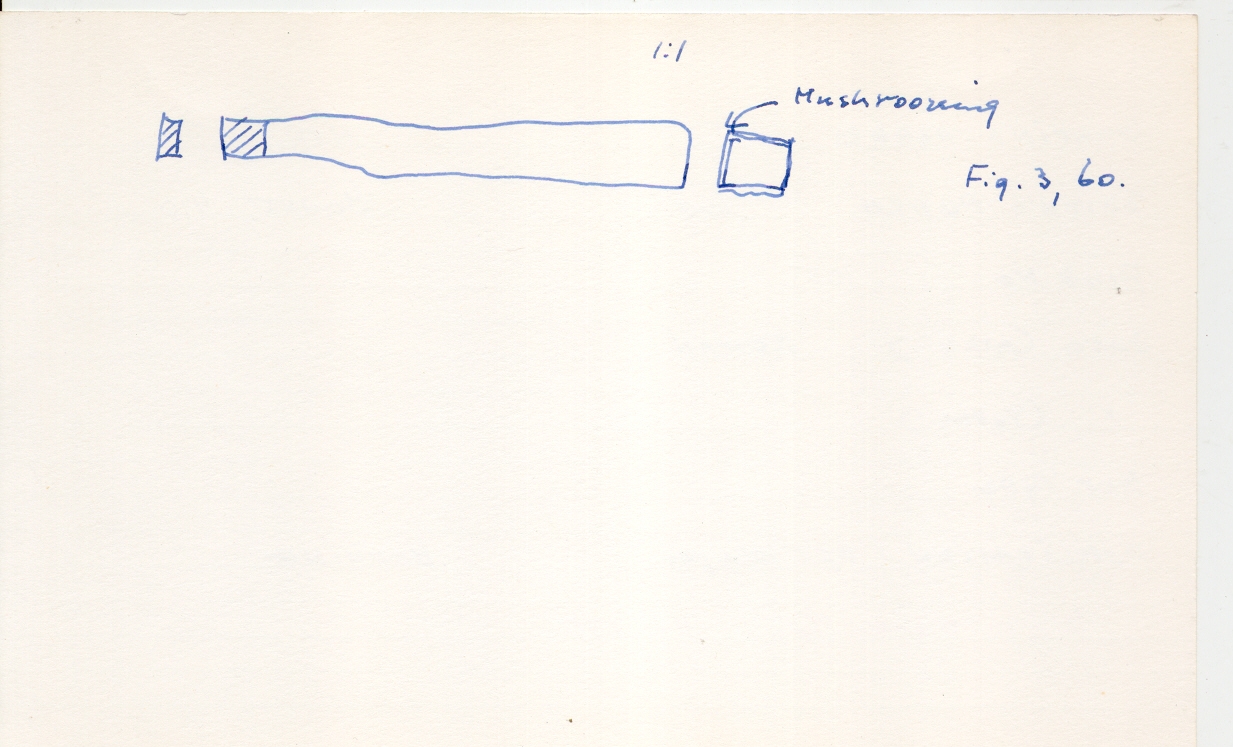 1:1
Mushrooming
Fig. 3, 60.